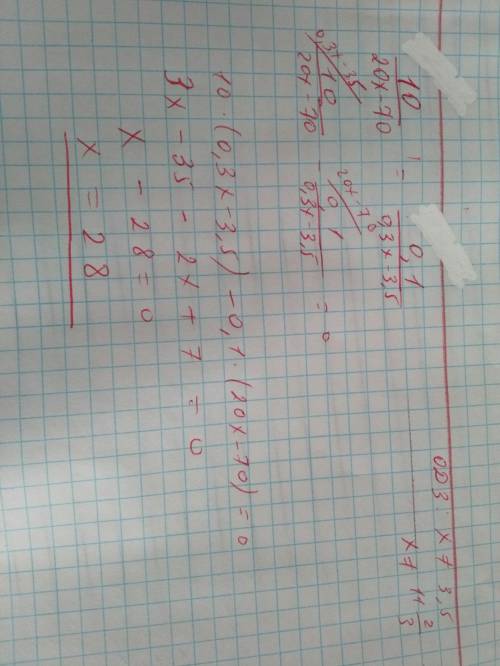 ОДЗ x ≠ 3,5
x ≠ 11 2/3
10/(20x-70) = 0,1/(0,3x-3,5)
0,3x-3,5 20x-70
10/(20x-70) - 0,1/(0,3x-3,5) = 0
10·(0,3x-3,5)-0,1·(20x-70)=0
3x-35-2x+7=0
x-28=0
x=28